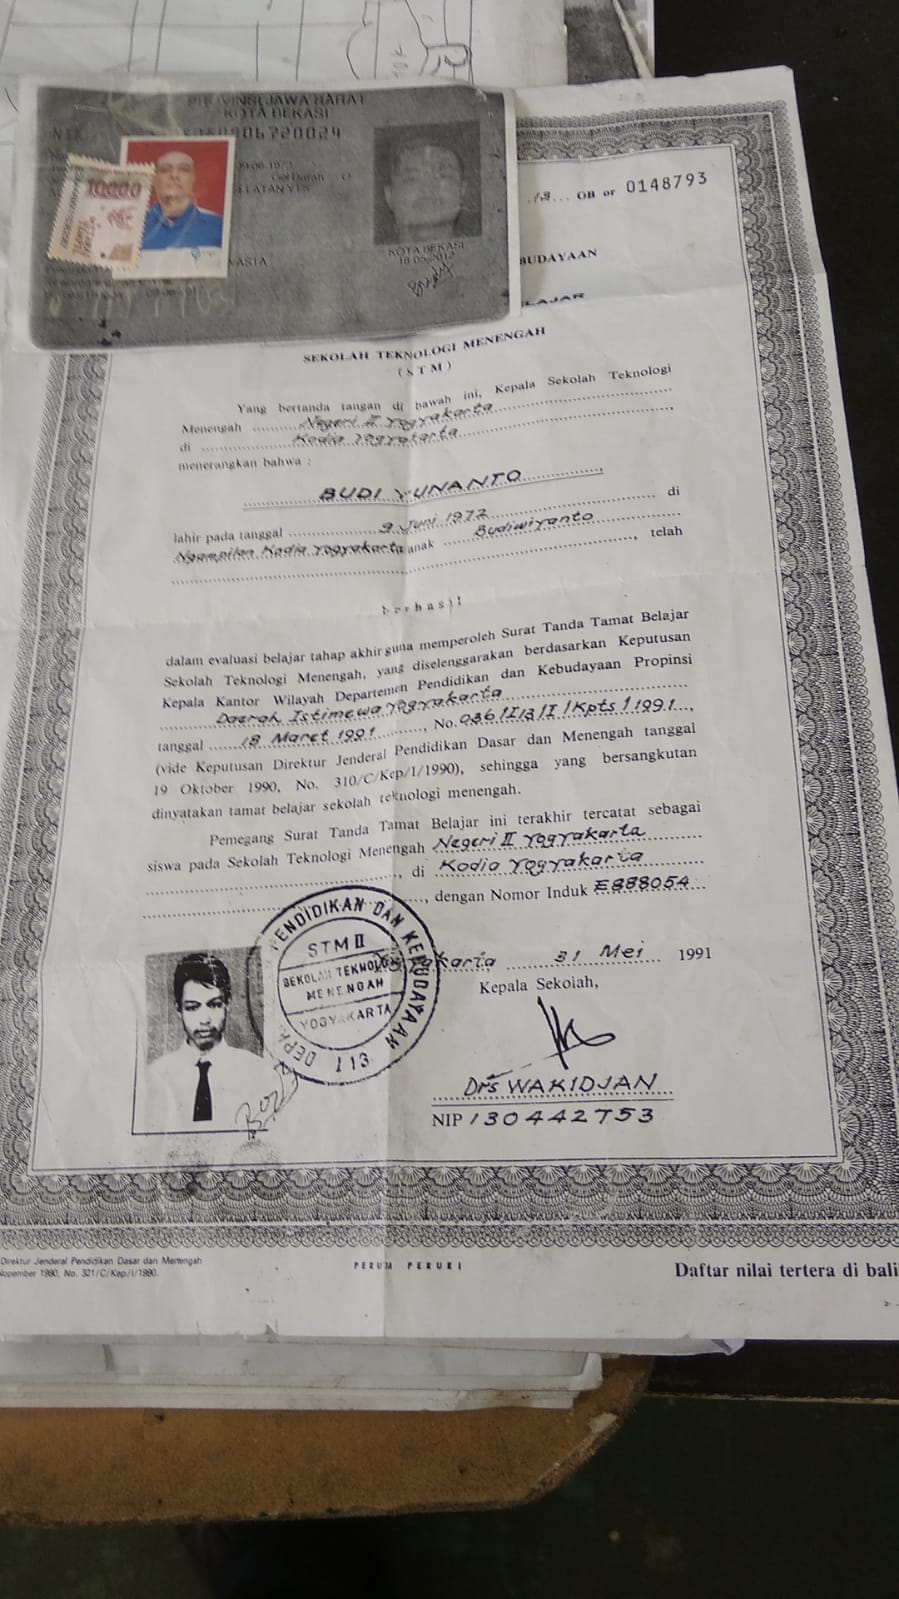 PROVINSI JAWA BARAT
KOTA BEKASI
NIK
Gol Darah O
10000
KOTA BEKASI
18 05 2012
OB or 0148793
BUDAYAAN
ELAJAR
SEKOLAH TEKNOLOGI MENENGAH
(STM)
Yang bertanda tangan di bawah ini, Kepala Sekolah Teknologi
Menengah Negeri II Yogyakarta
di Kodia Yogyakarta
menerangkan bahwa :
BUDI YUNANTO
lahir pada tanggal 9 Juni 1972 di
Ngampilan Kodia Yogyakarta anak Budiwiyanto
telah
berhasil
dalam evaluasi belajar tahap akhir guna memperoleh Surat Tanda Tamat Belajar
Sekolah Teknologi Menengah, yang diselenggarakan berdasarkan Keputusan
Kepala Kantor Wilayah Departemen Pendidikan dan Kebudayaan Propinsi
Daerah Istimewa Yogyakarta
tanggal 18 Maret 1991, No. 036/I13/I/Kpts/1991,
(vide Keputusan Direktur Jenderal Pendidikan Dasar dan Menengah tanggal
19 Oktober 1990, No. 310/C/Kep/I/1990), sehingga yang bersangkutan
dinyatakan tamat belajar sekolah teknologi menengah.
Pemegang Surat Tanda Tamat Belajar ini terakhir tercatat sebagai
siswa pada Sekolah Teknologi Menengah Negeri II Yogyakarta
, di Kodia Yogyakarta
, dengan Nomor Induk E888054
PENDIDIKAN DAN KEBUDAYAAN
STM II
SEKOLAH TEKNOLOGI
MENENGAH
YOGYAKARTA
DEPA
I 13
Yogyakarta 31 Mei 1991
Kepala Sekolah,
Drs WAKIDJAN
NIP 130442753
Direktur Jenderal Pendidikan Dasar dan Menengah
Nopember 1990, No. 321/C/Kep/I/1990.
PERUM PERURI
Daftar nilai tertera di bali